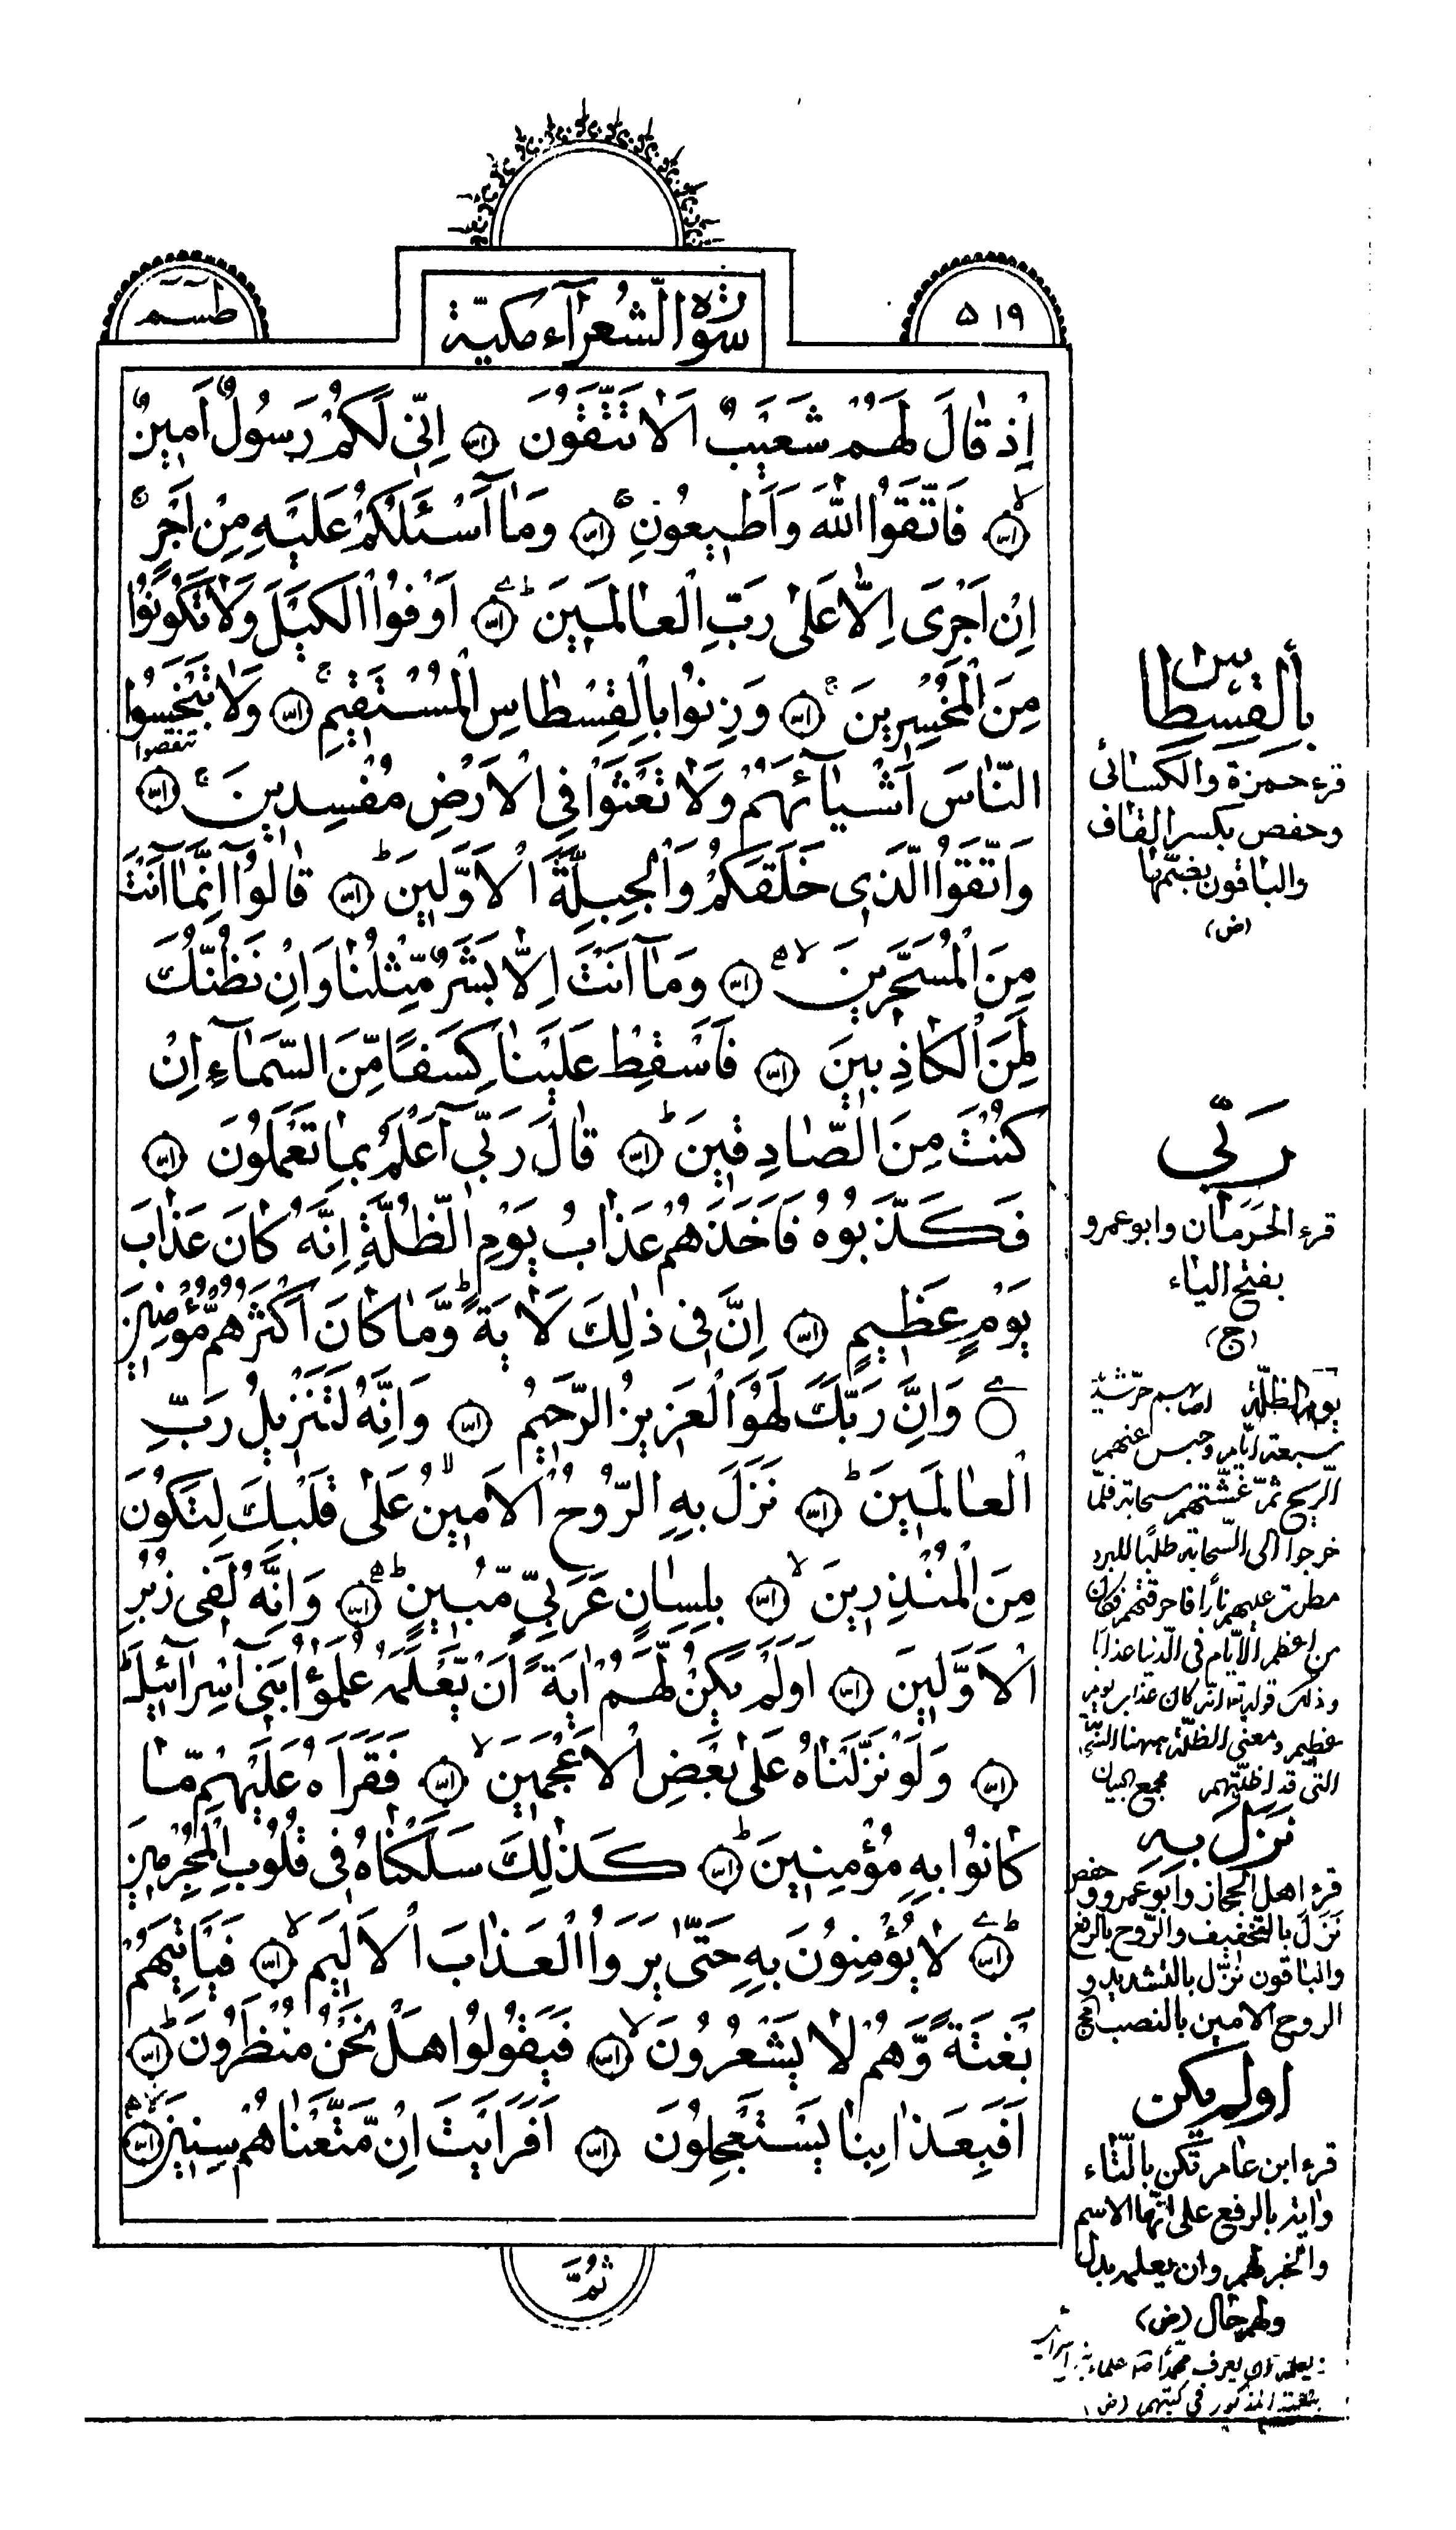 طسم
سورة الشعرآء مكية
٥١٩
اِذْ قٰالَ لَهُمْ شُعَيْبٌ اَلاٰ تَتَّقُونَ اِنّى لَكُمْ رَسُولٌ اَمينٌ
فَاتَّقُوا اللّٰهَ وَاَطيعُونِ وَمٰآ اَسْئَلُكُمْ عَلَيْهِ مِنْ اَجْرٍ
اِنْ اَجْرِىَ اِلاّٰ عَلىٰ رَبِّ الْعٰالَمينَ اَوْفُوا الْكَيْلَ وَلاٰ تَكُونُوا
مِنَ الْمُخْسِرينَ وَزِنُوا بِالْقِسْطٰاسِ الْمُسْتَقيمِ وَلاٰ تَبْخَسُوا
تنقصوا
النّٰاسَ اَشْيٰآءَهُمْ وَلاٰ تَعْثَوْا فِى الْاَرْضِ مُفْسِدينَ
وَاتَّقُوا الَّذى خَلَقَكُمْ وَالْجِبِلَّةَ الْاَوَّلينَ قٰالُوٓا اِنَّمٰآ اَنْتَ
مِنَ الْمُسَحَّرينَ وَمٰآ اَنْتَ اِلاّٰ بَشَرٌ مِّثْلُنٰا وَاِنْ نَظُنُّكَ
لَمِنَ الْكٰاذِبينَ فَاَسْقِطْ عَلَيْنٰا كِسَفًا مِّنَ السَّمٰآءِ اِنْ
كُنْتَ مِنَ الصّٰادِقينَ قٰالَ رَبّىٓ اَعْلَمُ بِمٰا تَعْمَلُونَ
فَكَذَّبُوهُ فَاَخَذَهُمْ عَذٰابُ يَوْمِ الظُّلَّةِ اِنَّهُ كٰانَ عَذٰابَ
يَوْمٍ عَظيمٍ اِنَّ فى ذٰلِكَ لَاٰيَةً وَّمٰا كٰانَ اَكْثَرُهُمْ مُّؤْمِنينَ
وَاِنَّ رَبَّكَ لَهُوَ الْعَزيزُ الرَّحيمُ وَاِنَّهُ لَتَنْزيلُ رَبِّ
الْعٰالَمينَ نَزَلَ بِهِ الرُّوحُ الْاَمينُ عَلىٰ قَلْبِكَ لِتَكُونَ
مِنَ الْمُنْذِرينَ بِلِسٰانٍ عَرَبِىٍّ مُّبينٍ وَاِنَّهُ لَفى زُبُرِ
الْاَوَّلينَ اَوَلَمْ يَكُنْ لَّهُمْ اٰيَةً اَنْ يَّعْلَمَهُ عُلَمٰٓؤُا بَنىٓ اِسْرٰآئيلَ
وَلَوْ نَزَّلْنٰاهُ عَلىٰ بَعْضِ الْاَعْجَمينَ فَقَرَاَهُ عَلَيْهِمْ مّٰا
كٰانُوا بِهِ مُؤْمِنينَ كَذٰلِكَ سَلَكْنٰاهُ فى قُلُوبِ الْمُجْرِمينَ
لاٰ يُؤْمِنُونَ بِهِ حَتّىٰ يَرَوُا الْعَذٰابَ الْاَليمَ فَيَاْتِيَهُمْ
بَغْتَةً وَّهُمْ لاٰ يَشْعُرُونَ فَيَقُولُوا هَلْ نَحْنُ مُنْظَرُونَ
اَفَبِعَذٰابِنٰا يَسْتَعْجِلُونَ اَفَرَاَيْتَ اِنْ مَّتَّعْنٰاهُمْ سِنينَ
ثُمَّ
بِالْقِسْطٰاسِ
قرء حمزة والكسائى
وحفص بكسر القاف
والباقون بضمّها
(ض)
رَبّى
قرء الحَرَميّان وابو عمرو
بفتح الياء
(ج)
يوم الظلّة اصابهم حرّ شديد
سبعة ايّام وحبس عنهم
الرّيح ثمّ غشيتهم سحابة فلمّا
خرجوا الى السّحابة طلبًا للبرد
مطرت عليهم نارًا فاحرقتهم فكان
من اعظم الايّام فى الدّنيا عذابا
وذلك قوله انّه كان عذاب يوم
عظيم ومعنى الظلّة ههنا السّحابة
التى قد اظلّتهم مجمع البيان
نَزَلَ بِهِ
قرء اهل الحجاز وابو عمرو وحفص
نَزَلَ بالتّخفيف والرّوح بالرفع
والباقون نزّل بالتشديد و
الروح الامين بالنصب
اولم يكن
قرء ابن عامر تكن بالتّاء
واية بالرفع على انّها الاسم
والخبر لهم وان يعلمه بدل
ولهم حال (ض)